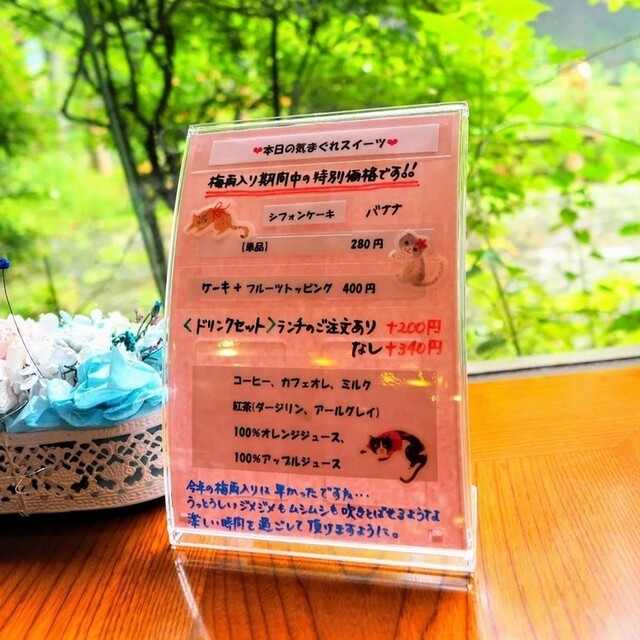 ❤本日の気まぐれスイーツ❤
梅雨入り期間中の特別価格です!!
シフォンケーキ バナナ
【単品】 280円
ケーキ＋フルーツトッピング 400円
<ドリンクセット>ランチのご注文あり +200円
なし +340円
コーヒー、カフェオレ、ミルク
紅茶(ダージリン、アールグレイ)
100%オレンジジュース、
100%アップルジュース
今年の梅雨入りは早かったですネ…
うっとうしいジメジメもムシムシも吹きとばせるような
楽しい時間を過ごして頂けますように。